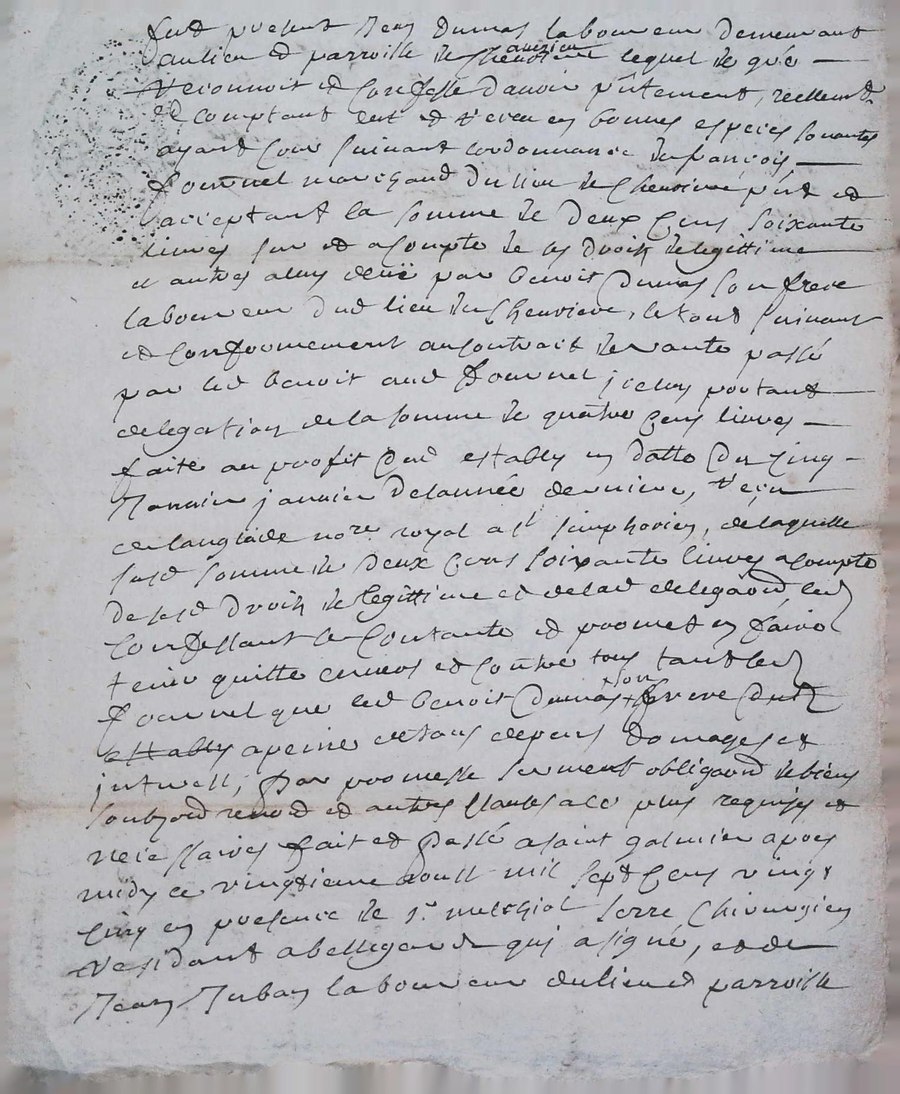 fust present Jean Dumas laboureur demeurant
au lieu et parroisse de Chevrieres lequel de gré
reconnoit et confesse d'avoir p̃ntement, reellem̃t
et comptant eut et receu en bonnes especes sonantes
ayant cour suivant l'ordonnance de françois
fournel marchand du lieu de Chevriere p̃nt et
acceptant la somme de deux cens soixante
livres sur et a compte de ses droits de legittime
et autres a luy deüe par benoit Dumas son frere
laboureur dud lieu de Chevriere, le tout suivant
et conformement au contrait de vante passé
par led benoit aud fournel jceluy portant
delegation de la somme de quatre cens livres
faite au proffit dud estably en datte du cinq
janvier de l'année derniere, receu
de langlade nore royal a st simphorien, de laquelle
susd somme de deux cens soixante livres a compte
de sesd droits de legittime et de lad delega͠on led
confessant se contante et promet en faire
tenir quitte envers et contre tous tant led
fournel que led benoit Dumas son frere dud
estably a peine de tous depens domages et
jnterests, par promesse serment obliga͠on de biens
soubz͠on renon͠ et autres clauses a ce plus requises et
necessaires fait et passé a saint galmier apres
midy ce vingtieme aoust mil sept cens vingt
cinq en presence de sr melchiol serre chirurgien
residant a bellegarde qui a signé, et de
Jean laboureur du lieu et parroisse